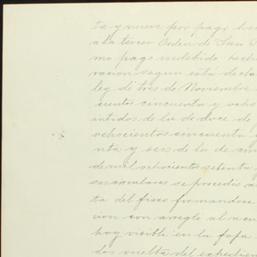 ta y nueve por pago hec
a la tercer Orden de San
mo pago redebido hech
racion segun esta decla
ley di tres de Noviembre
cientos cincuenta y ocho
intidos de la de doce de
ochocientos cincuenta
nta y seis de la de cin
de mil ochocientos setenta
se procedio a
ta del fisco firmandose
cion con arreglo al
hoy visible en la foja
dos vuelta del espedien